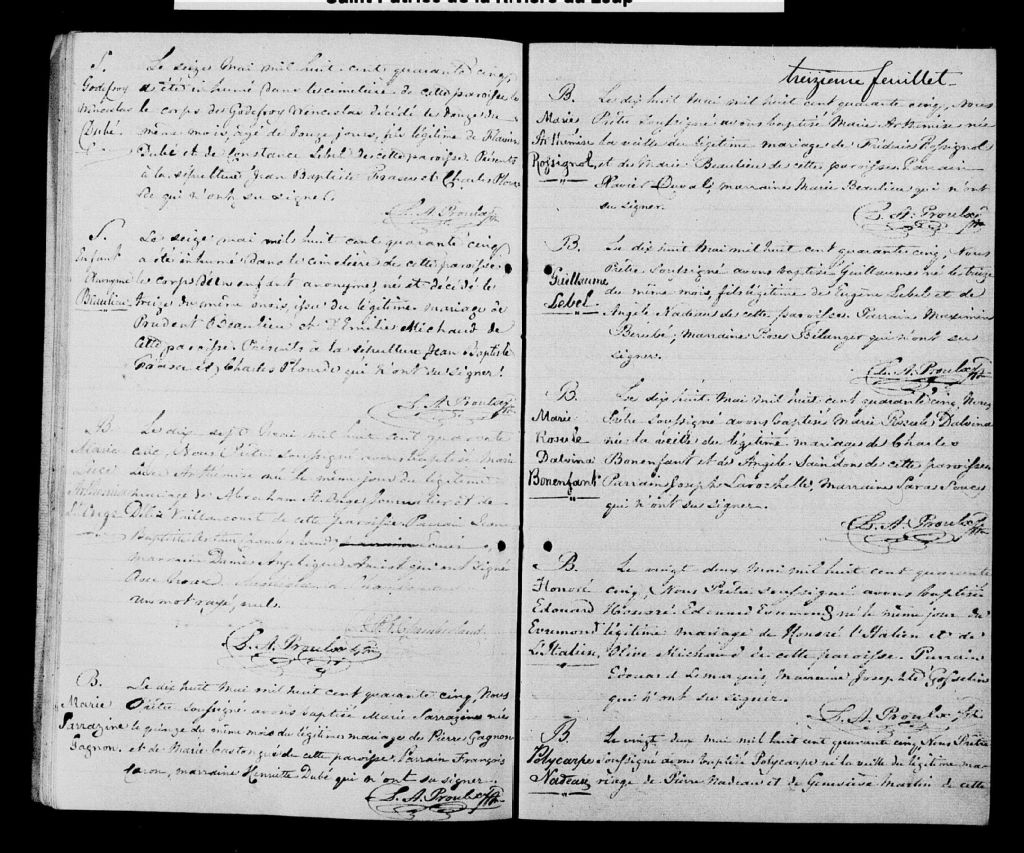 Saint Patrice de la Rivière du Loup
S.
Godefroy
Wenceslas
Dubé.
Le seize mai mil huit cent quarante cinq
a été inhumé dans le cimetière de cette paroisse le
le corps de Godefroy Wenceslas décédé le douze du
même mois, agé de douze jours, fils légitime de Flavien
Dubé et de Constance Lebel de cette paroisse. Présents
à la sépulture Jean Baptiste et Charles Plour
de qui n'ont su signer.
L. A. Proulx Ptre
S.
Enfant
Anonyme
Beaulieu
Le seize mai mil huit cent quarante cinq
a été inhumé dans le cimetière de cette paroisse
le corps d'un enfant anonyme, né et décédé le
treize du même mois, issu du légitime mariage de
Prudent Beaulieu et d'Emilie Michaud de
cette paroisse. Présents à la sépulture Jean Baptiste
et Charles Plourde qui n'ont su signer.
L. A. Proulx Ptre
B
Marie
Luce
Arthémise
Le dix sept mai mil huit cent quarante
cinq, Nous Prêtre soussigné avons baptisé Marie
Luce Arthémise née le même jour du légitime
mariage de Abraham journalier et de
Vaillancourt de cette paroisse Parrain Jean
Baptiste
marraine Dame Angélique qui ont signé
avec nous.
un mot rayé, nul.
L. A. Proulx Ptre
B.
Marie
Sarrazine
Gagnon.
Le dix huit mai mil huit cent quarante cinq, Nous
Prêtre soussigné avons baptisé Marie Sarrazine née
le quinze du même mois du légitime mariage de Pierre Gagnon
et de Marie de cette paroisse. Parrain François
marraine Henriette Dubé qui n'ont su signer.
L. A. Proulx Ptre
treizieme feuillet
B.
Marie
Arthémise
Rossignol,
Le dix huit mai mil huit cent quarante cinq, Nous
Prêtre soussigné avons baptisé Marie Arthémise née
la veille du légitime mariage de Rossignol
et de Marie Beaulieu de cette paroisse. Parrain
Xavier Duval, marraine Marie Beaulieu qui n'ont
su signer.
L. A. Proulx Ptre
B.
Guillaume
Lebel.
Le dix huit mai mil huit cent quarante cinq, Nous
Prêtre soussigné avons baptisé Guillaume né le treize
du même mois, fils légitime de Eugène Lebel et de
Angèle Nadeau de cette paroisse. Parrain Maximin
Bérubé, Marraine Rose Bélanger qui n'ont su
signer.
L. A. Proulx Ptre
B.
Marie
Rosalie
Dalvina
Bonenfant
Le dix huit mai mil huit cent quarante cinq, Nous
Prêtre soussigné avons baptisé Marie Rosalie Dalvina
née la veille du légitime mariage de Charles
Bonenfant et de Angèle Saindon de cette paroisse
Parrain Joseph Larochelle, Marraine Sara Soucy
qui n'ont su signer.
L. A. Proulx Ptre
B.
Honoré
Edouard
Evremond
L'Italien,
Le vingt deux mai mil huit cent quarante
cinq, Nous Prêtre soussigné avons baptisé
Honoré Edouard Evremond né le même jour du
légitime mariage de Honoré l'Italien et de
Olive Michaud de cette paroisse. Parrain
Edouard Lemarquis, Marraine Josephte Gosselin
qui n'ont su signer.
L. A. Proulx Ptre
B
Polycarpe
Nadeau,
Le vingt deux mai mil huit cent quarante cinq, Nous Prêtre
soussigné avons baptisé Polycarpe né la veille du légitime ma-
riage de Pierre Nadeau et de Geneviève Martin de cette